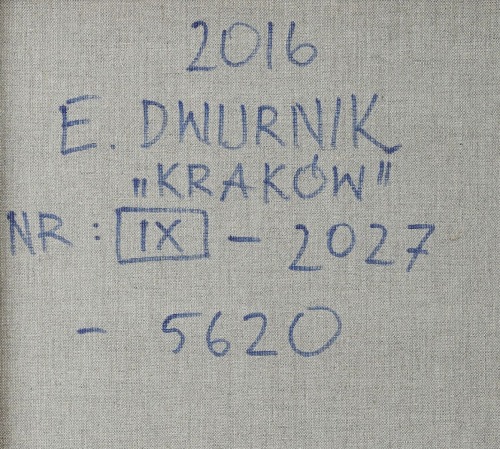 2016
E. DWURNIK
"KRAKÓW"
NR: IX - 2027
- 5620